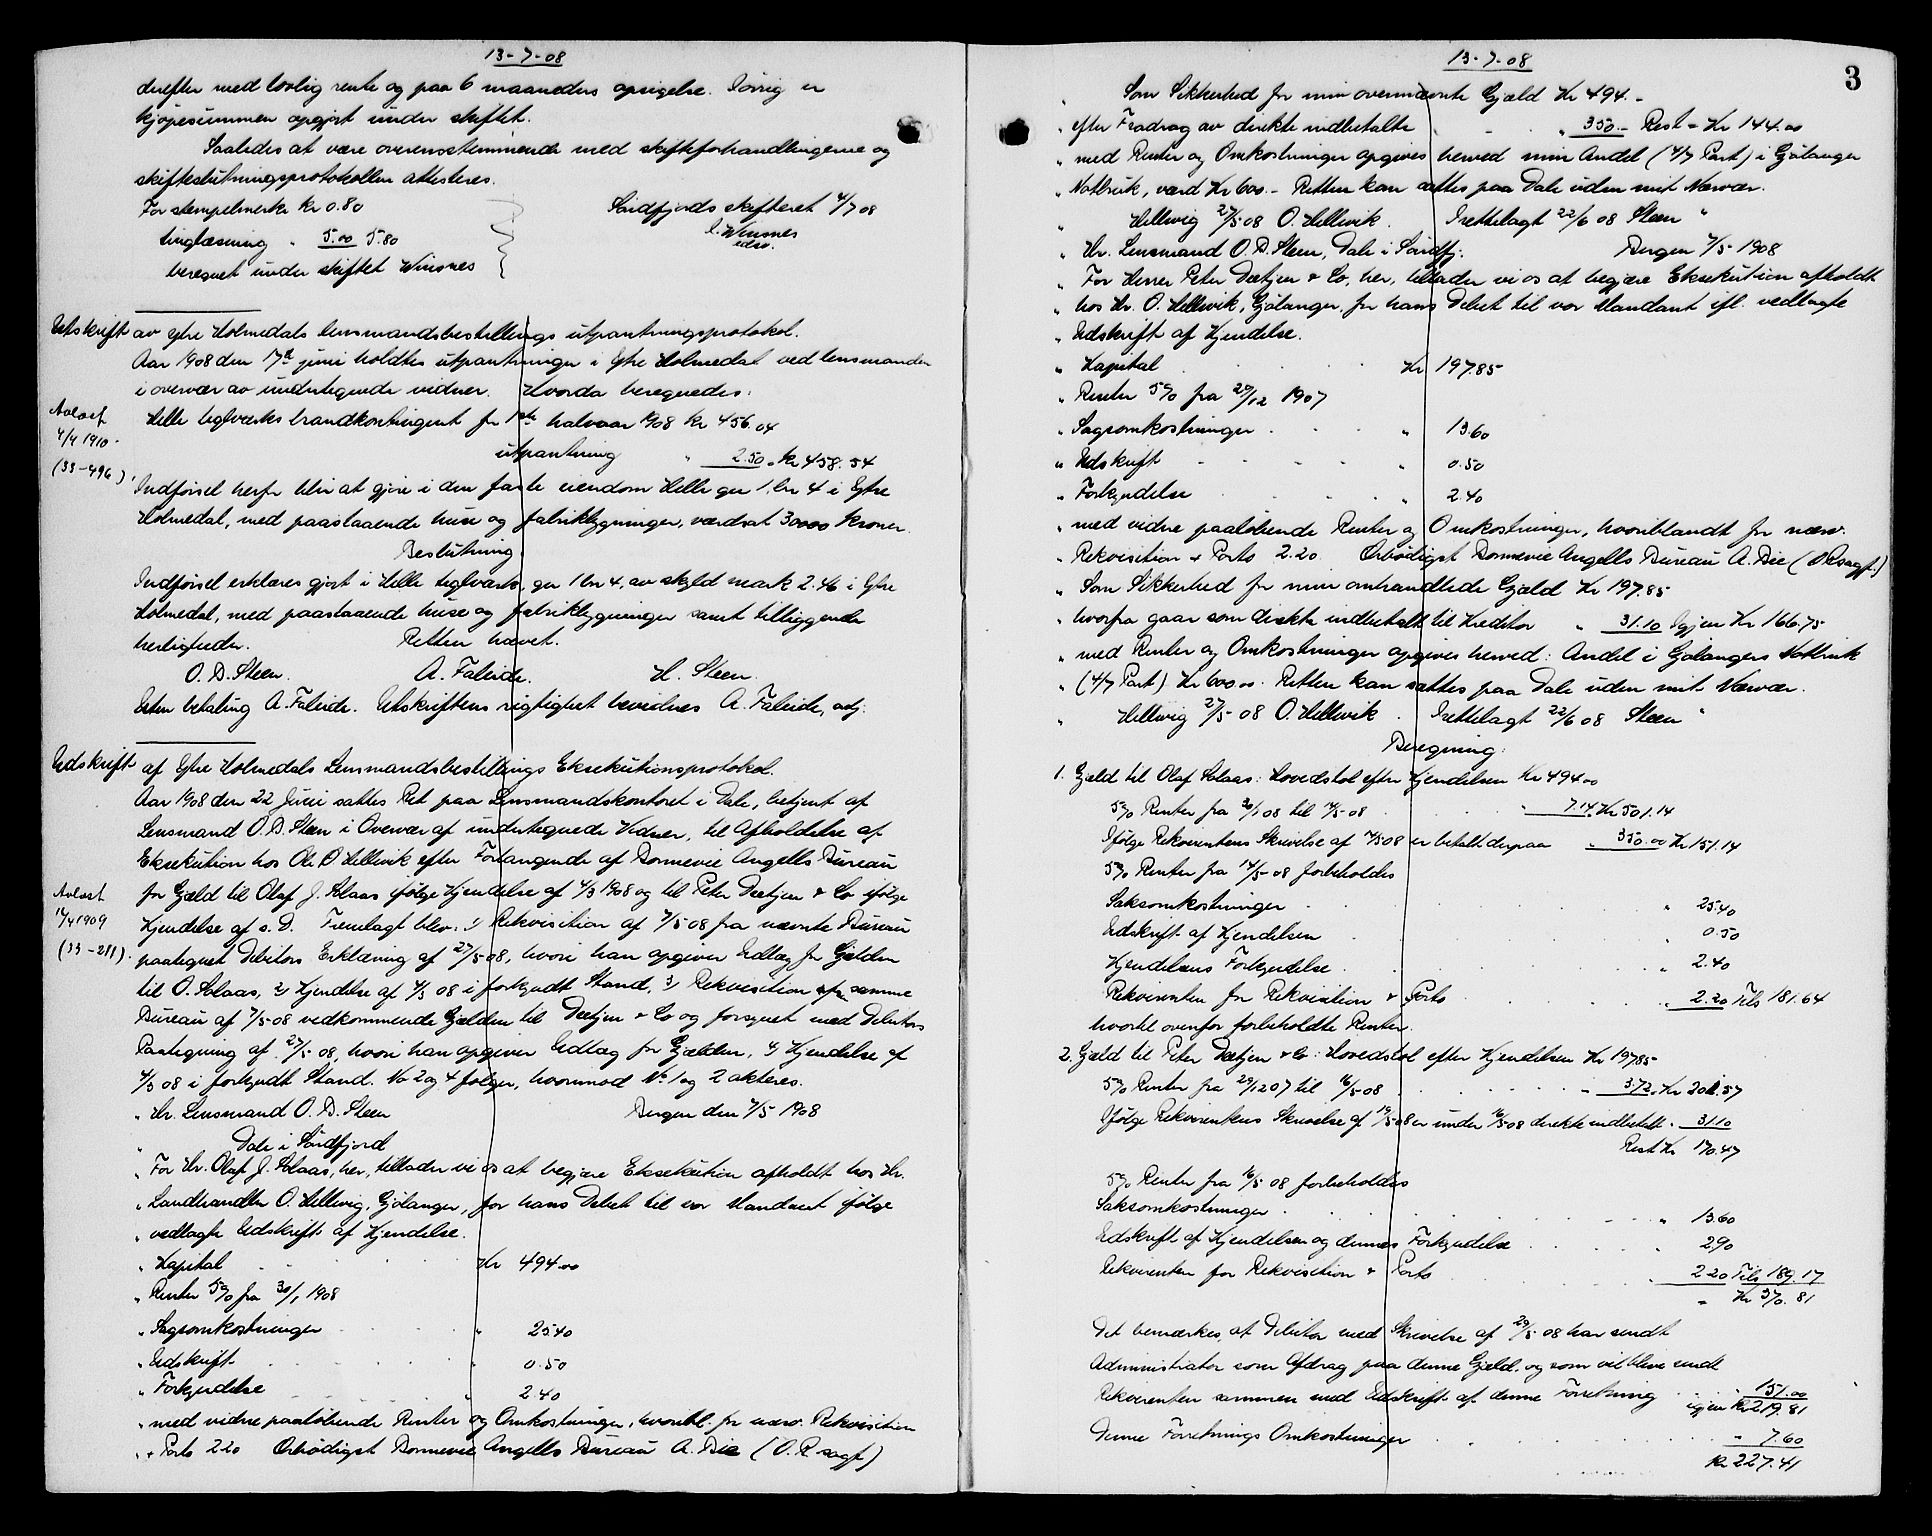 13-7-08
derefter med lovlig rente og paa 6 maaneders opsigelse. Iövrig er
kjöpesummen opgjort under skiftet.
Saaledes at være overensstemmende med skifteforhandlingerne og
skifteslutningsprotokollen attesteres.
For stempelmerke kr 0.80
Söndfjords skifteret 4/7 08
tinglæsning " 5.00 5.80
Winsnes
beregnet under skiftet Winsnes
Utskrift av ytre Holmedals lensmandsbestillings utpantningsprotokol.
Aar 1908 den 17de juni holdtes utpantninger i Ytre Holmedal ved lensmanden
i overvær av undertegnede vidner. Hvorda beregnedes:
Avlæst
4/4 1910
(33-496)
Helle teglverks brandkontingent for 1ste halvaar 1908 kr 456.04
utpantning " 2.50 " kr 458.54
Indförsel herfor blir at gjöre i den faste eiendom Helle gnr 1, bnr 4 i Ytre
Holmedal, med paastaaende huse og fabrikbygninger, værdsat 30000 kroner.
Beslutning
Indförsel erklæres gjort i Helle teglverk, gnr 1 bnr 4, av skyld mark 2.46 i Ytre
Holmedal, med paastaaende huse og fabrikbygninger samt tilliggende
herligheder. Retten hævet.
O. D. Steen. A. Faleide. H. Steen.
Uten betaling A. Faleide. Utskriftens rigtighet bevidnes A. Faleide, adj.
Udskrift af Ytre Holmedals Lensmandsbestillings Eksekutionsprotokol.
Aar 1908 den 22 Juni sattes Ret paa Lensmandskontoret i Dale, betjent af
Lensmand O. D. Steen i Overvær af undertegnede Vidner, til Afholdelse af
Eksekution hos Ole O Hellevik efter Forlangende af Dornevie Angells Bureau
Avlæst
14/4 1909
(33-211).
for Gjæld til Olaf J. Aalaas ifölge Kjendelse af 4/3 1908 og til Peter Dætjen & Co ifölge
Kjendelse af s. D. Fremlagt blev: 1) Rekvisition af 7/5 08 fra nævnte Bureau
paategnet Debitors Erklæring af 27/5 08, hvori han opgiver Udlæg for Gjælden
til O. Aalaas, 2) Kjendelse af 4/3 08 i forkyndt Stand, 3) Rekvisition fra samme
Bureau af 7/5 08 vedkommende Gjælden til Dætjen & Co og forsynet med Debitors
Paategning af 27/5 08, hvori han opgiver Udlæg for Gjælden, 4) Kjendelse af
4/3 08 i forkyndt Stand. No 2 og 4 fölger, hvorimod No 1 og 2 akteres.
" Hr. Lensmand O. D. Steen Bergen den 7/5 1908
" Dale i Söndfjord
" For Hr. Olaf J. Aalaas, her, tillader vi os at begjære Eksekution afholdt hos Hr.
" Landhandler O. Hellevig, Gjölanger, for hans Debet til vor Mandant ifölge
" vedlagte Udskrift af Kjendelse.
" Kapital Kr 494.00
" Renter 5% fra 30/1 1908
" Sagsomkostninger " 25.40
" Udskrift " 0.50
" Forkyndelse " 2.40
" med videre paalöbende Renter og Omkostninger, hvoribl. for nærv. Rekvisition
" + Porto 2.20 Ærbödigst Dornevie Angells Bureau A. Bie (O.R. sagf.)
13-7-08
3
" Som Sikkerhed for min ovennævnte Gjæld Kr 494.-
" efter Fradrag av direkte indbetalte " 350.- Rest = Kr 144.00
" med Renter og Omkostninger opgives herved min Andel (4/7 Part) i Gjölanger
" Notbruk, værd Kr 600.- Retten kan sættes paa Dale uden mit Nærvær.
" Hellevig 27/5 08 O. Hellevik. Irettelagt 22/6 08 Steen "
" Hr. Lensmand O. D. Steen, Dale i Söndfj. Bergen 7/5 1908
" For Herrer Peter Dætjen & Co, her, tillader vi os at begjære Eksekution afholdt
" hos Hr. O. Hellevik, Gjölanger, for hans Debet til vor Mandant ifl. vedlagte
" Udskrift af Kjendelse.
" Kapital Kr 197.85
" Renter 5% fra 29/12 1907
" Sagsomkostninger " 13.60
" Udskrift " 0.50
" Forkyndelse " 2.40
" med videre paalöbende Renter og Omkostninger, hvoriblandt for nærv.
" Rekvisition + Porto 2.20 Ærbödigst Dornevie Angells Bureau A. Bie (O R sagf.)
" Som Sikkerhed for min omhandlede Gjæld Kr 197.85
" hvorfra gaar som direkte indbetalt til Kreditor " 31.10 Igjen Kr 166.75
" med Renter og Omkostninger opgives herved: Andel i Gjölangers Notbruk
" (4/7 Part) Kr 600.00. Retten kan sættes paa Dale uden mit Nærvær.
" Hellevig 27/5 08 O. Hellevik. Irettelagt 22/6 08 Steen "
Beregning:
1. Gjæld til Olaf Aalaas: Hovedstol efter Kjendelsen Kr 494.00
5% Renter fra 30/1 08 til 14/5 08 " 7.14 Kr 501.14
Ifölge Rekvirentens Skrivelse af 19/5 08 er betalt derpaa " 350.00 Kr 151.14
5% Renter fra 14/5 08 forbeholdes
Saksomkostninger " 25.40
Udskrift af Kjendelsen " 0.50
Kjendelsens Forkyndelse " 2.40
Rekvirenten for Rekvisition & Porto " 2.20 Tils 181.64
hvortil ovenfor forbeholdte Renter.
2. Gjæld til Peter Dætjen & Co: Hovedstol efter Kjendelsen Kr 197.85
5% Renter fra 29/12 07 til 16/5 08 " 3.72 " Kr 201.57
Ifölge Rekvirentens Skrivelse af 19/5 08 er under 16/5 08 direkte indbetalt " 31.10
Rest Kr 170.47
5% Renter fra 16/5 08 forbeholdes
Saksomkostninger " 13.60
Udskrift af Kjendelsen og dennes Forkyndelse " 2.90
Rekvirenten for Rekvisition & Porto " 2.20 Tils 189.17
" Kr 370.81
Det bemærkes, at Debitor med Skrivelse af 29/5 08 har sendt
Administrator som Afdrag paa denne Gjæld, og som vil blive sendt
Rekvirenten sammen med Udskrift af denne Forretning " 151.00
igjen Kr 219.81
Denne Forretnings Omkostninger " 7.60
Kr 227.41